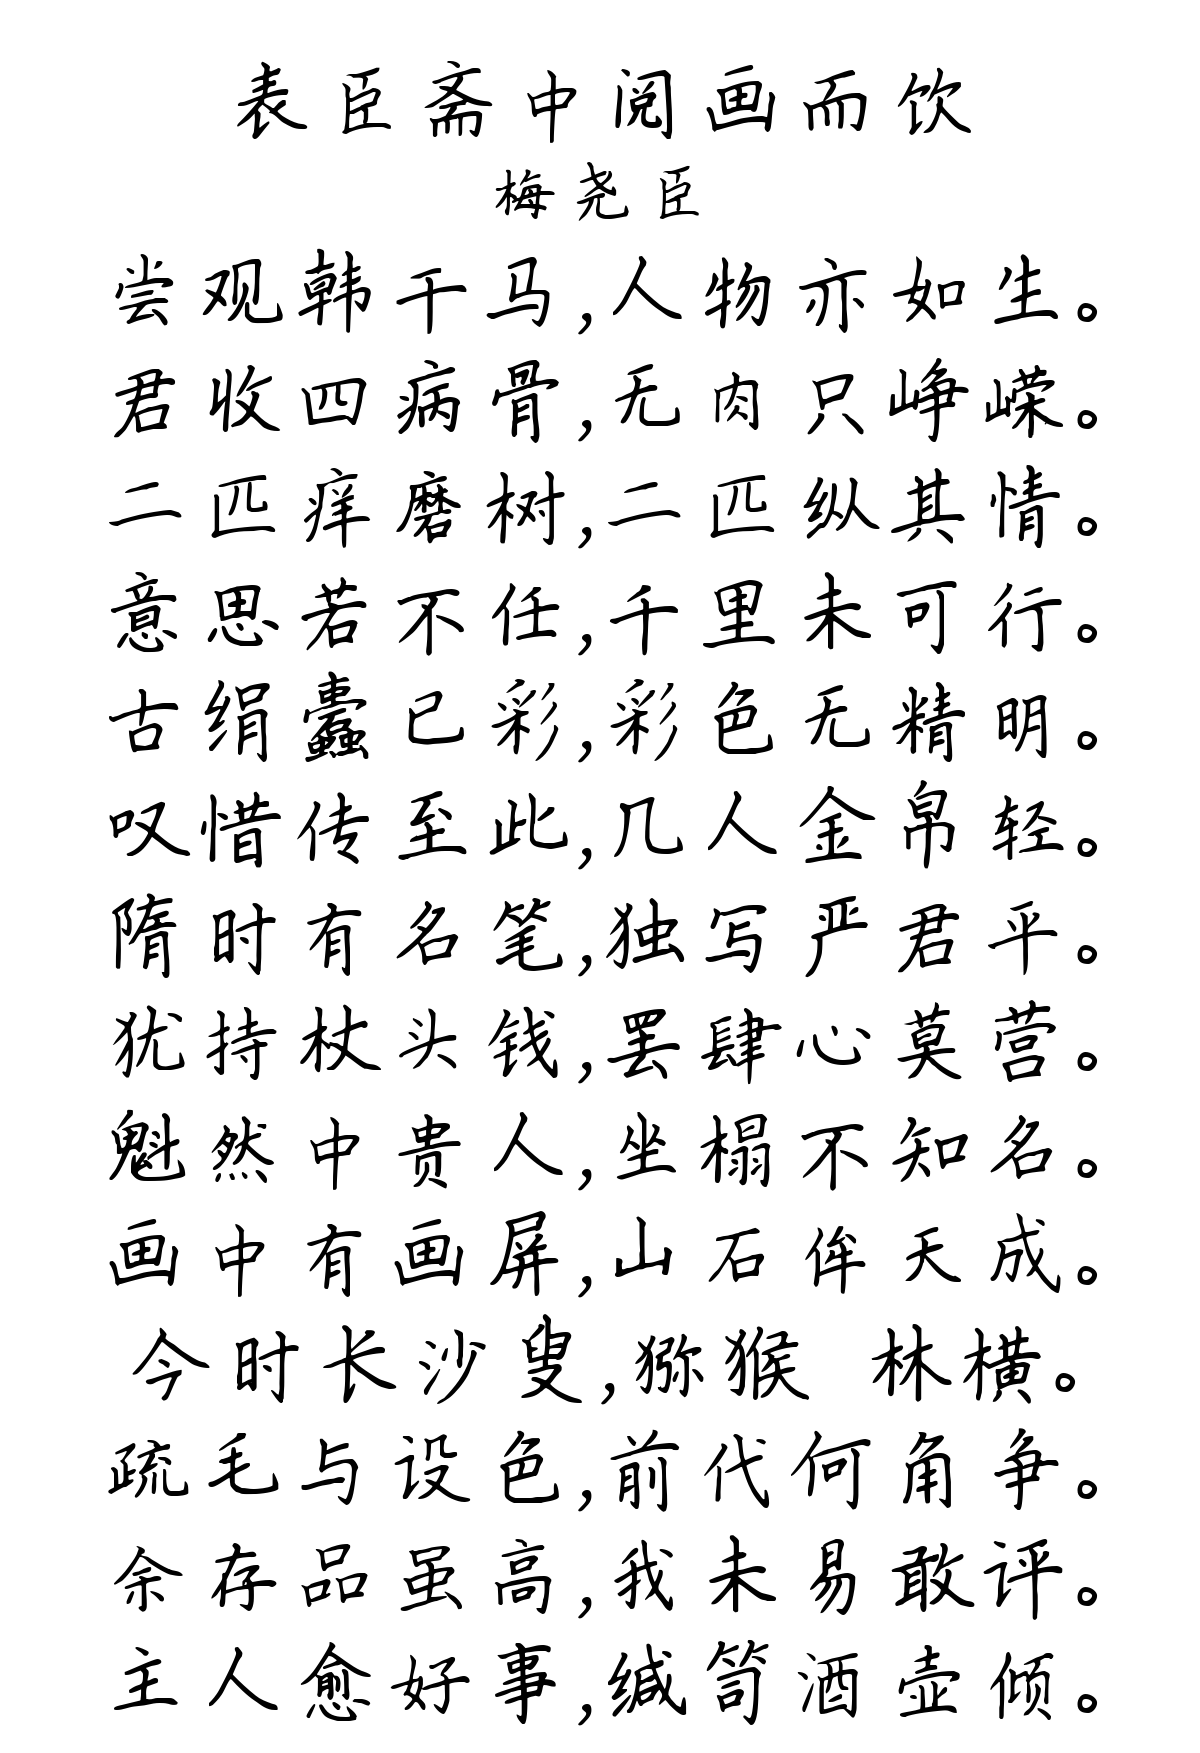 表臣斋中阅画而饮
梅尧臣
尝观韩干马,人物亦如生。
君收四病骨,无肉只峥嵘。
二匹痒磨树,二匹纵其情。
意思若不任,千里未可行。
古绢蠹已彩,彩色无精明。
叹惜传至此,几人金帛轻。
隋时有名笔,独写严君平。
犹持杖头钱,罢肆心莫营。
魁然中贵人,坐榻不知名。
画中有画屏,山石侔天成。
今时长沙叟,猕猴 林横。
疏毛与设色,前代何角争。
余存品虽高,我未易敢评。
主人愈好事,缄笥酒壶倾。